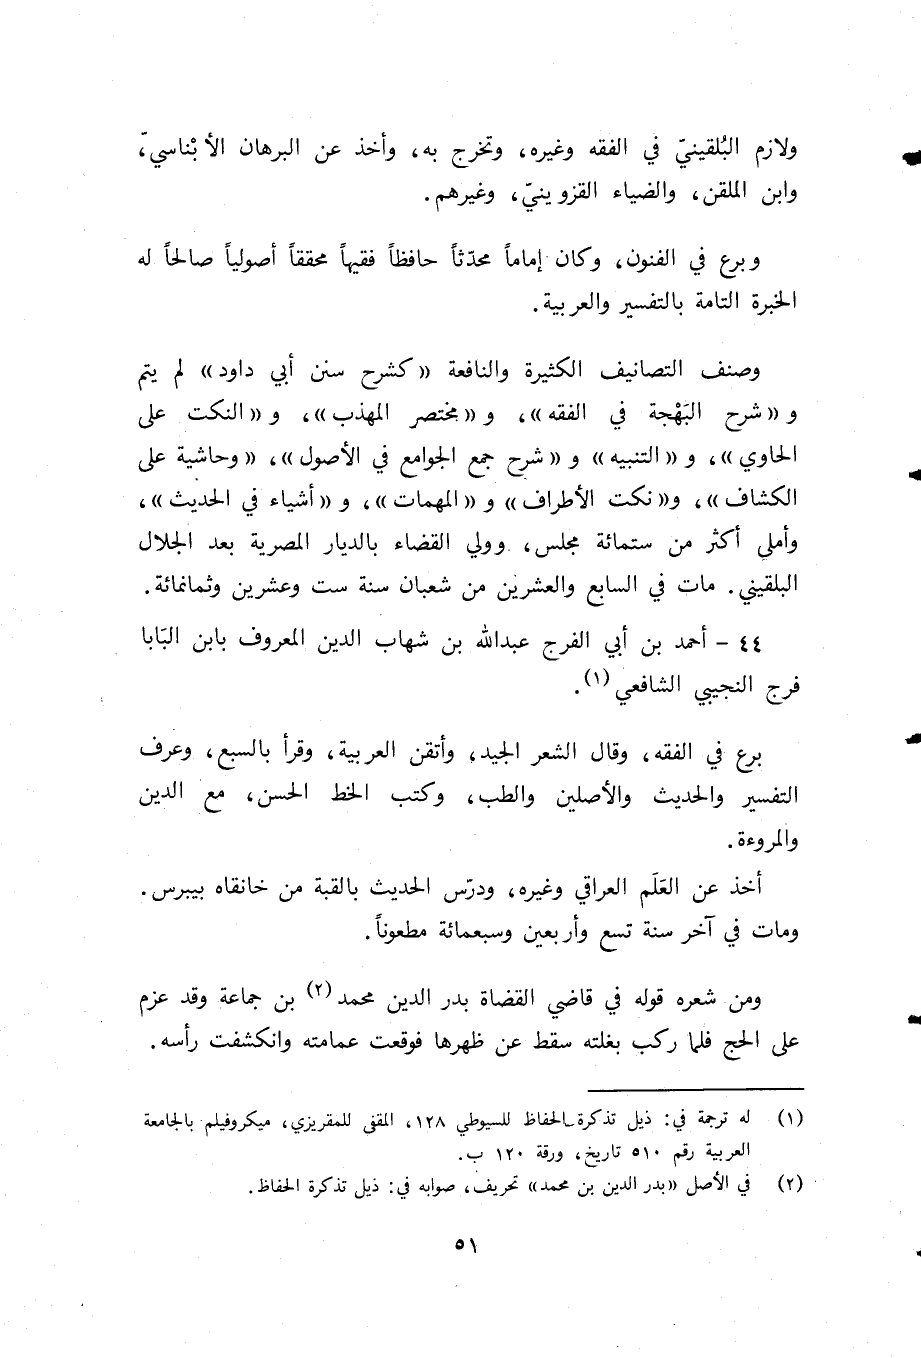 ولازم البُلقينيّ في الفقه وغيره، وتخرج به، وأخذ عن البرهان الأبْناسيّ،
وابن الملقن، والضياء القزوينيّ، وغيرهم.
وبرع في الفنون، وكان إماماً محدّثاً حافظاً فقيهاً محققاً أصولياً صالحاً له
الخبرة التامة بالتفسير والعربية.
وصنف التصانيف الكثيرة والنافعة «كشرح سنن أبي داود» لم يتم
و«شرح البَهْجة في الفقه»، و«مختصر المهذب»، و«النكت على
الحاوي»، و«التنبيه» و«شرح جمع الجوامع في الأصول»، «وحاشية على
الكشاف»، و«نكت الأطراف» و«المهمات»، و«أشياء في الحديث»،
وأملى أكثر من ستمائة مجلس، وولي القضاء بالديار المصرية بعد الجلال
البلقيني. مات في السابع والعشرين من شعبان سنة ست وعشرين وثمانمائة.
٤٤ - أحمد بن أبي الفرج عبدالله بن شهاب الدين المعروف بابن البَابا
فرج النجيبي الشافعي (١).
برع في الفقه، وقال الشعر الجيد، وأتقن العربية، وقرأ بالسبع، وعرف
التفسير والحديث والأصلين والطب، وكتب الخط الحسن، مع الدين
والمروءة.
أخذ عن العَلَم العراقي وغيره، ودرّس الحديث بالقبة من خانقاه بيبرس.
ومات في آخر سنة تسع وأربعين وسبعمائة مطعوناً.
ومن شعره قوله في قاضي القضاة بدر الدين محمد (٢) بن جماعة وقد عزم
على الحج فلما ركب بغلته سقط عن ظهرها فوقعت عمامته وانكشفت رأسه.
(١) له ترجمة في: ذيل تذكرة الحفاظ للسيوطي ١٢٨، المقفى للمقريزي، ميكروفيلم بالجامعة
العربية رقم ٥١٠ تاريخ، ورقة ١٢٠ ب.
(٢) في الأصل «بدر الدين بن محمد» تحريف، صوابه في: ذيل تذكرة الحفاظ.
٥١